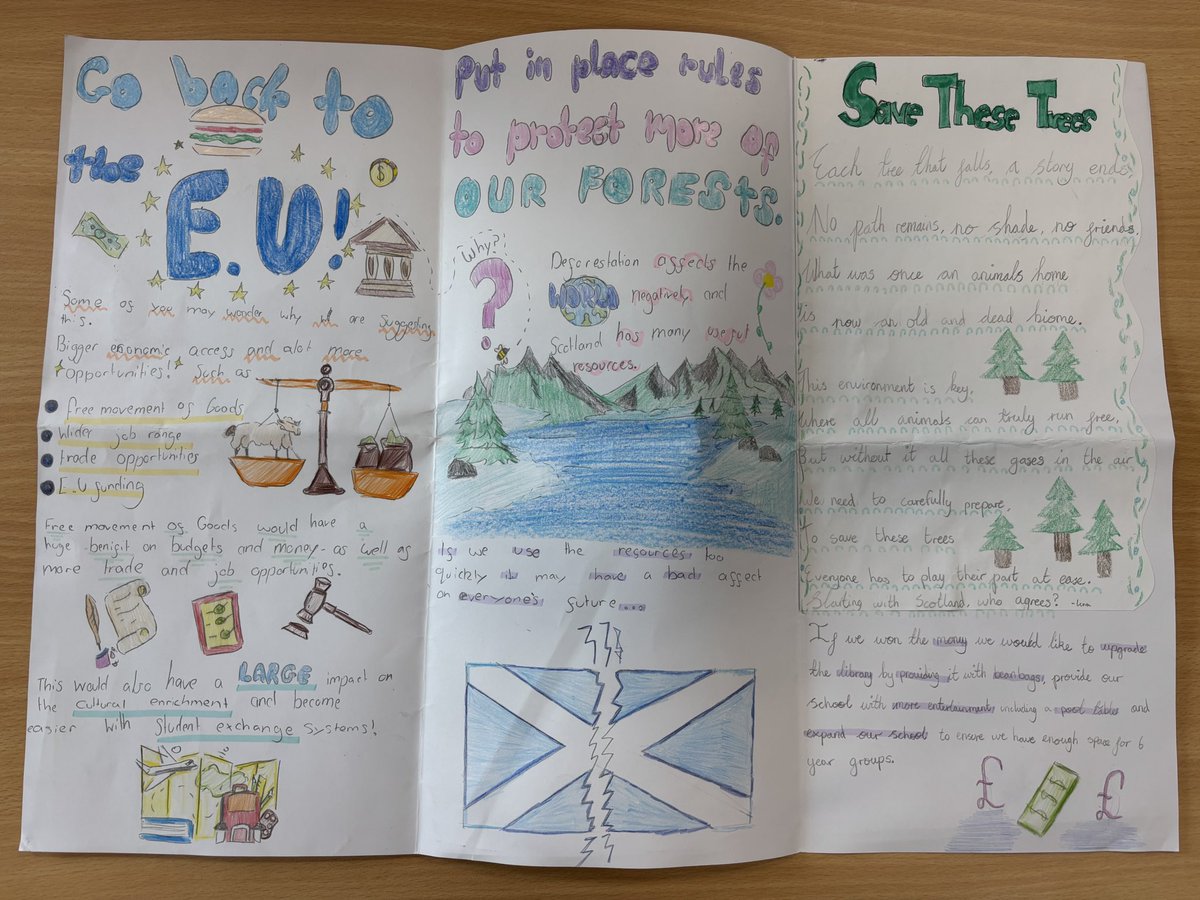 Go back to
the E.U!
Some of you may wonder why we are suggesting
this.
Bigger economic access and alot more
opportunities! Such as
Free movement of Goods
Wider job range
trade opportunities
E.U funding
Free movement of Goods would have a
huge benifit on budgets and money - as well as
more trade and job opportunities.
This would also have a LARGE impact on
the cultural enrichment and become
easier with Student exchange systems!
Put in place rules
to protect more of
OUR FORESTS.
Why?
?
Deforestation affects the
WORLD negatively and
Scotland has many useful
resources.
If we use the resources too
quickly it may have a bad affect
on everyone's future...
Save These Trees
Each tree that falls, a story ends,
No path remains, no shade, no friends,
What was once an animals home
is now an old and dead biome.
This environment is key,
Where all animals can truly run free,
But without it all these gases in the air
We need to carefully prepare,
To save these trees
Everyone has to play their part at ease.
Starting with Scotland, who agrees?
If we won the money we would like to upgrade
the library by providing it with beanbags, provide our
school with more entertainment including a pool table and
expand our school to ensure we have enough space for 6
year groups.
£ £